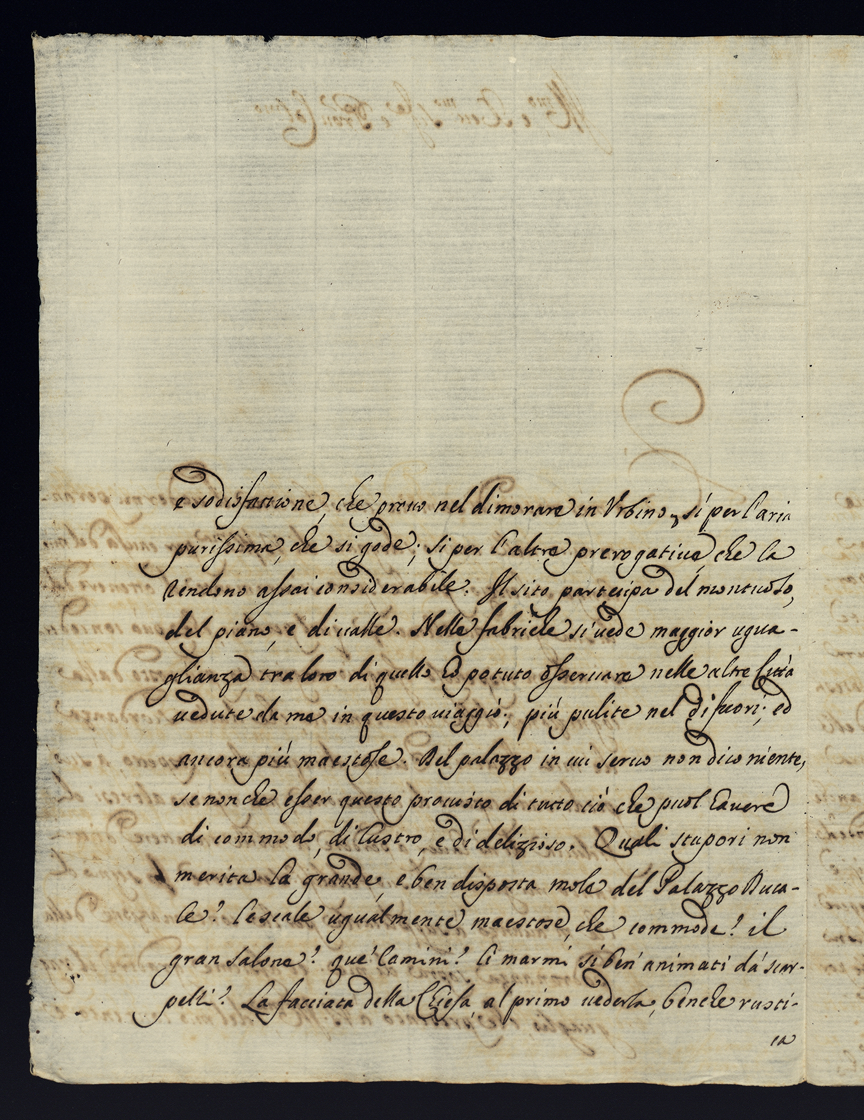 e sodisfattione, che prouo nel dimorare in Vrbino, sì per l'aria
purissima, che si gode; si per l'altre prerogatiue, che la
rendono assai considerabile. Il sito partecipa del montuoso,
del piano, e di ualle. Nelle fabriche si uede maggior ugua-
glianza tra loro di quello hò potuto osseruare nelle altre Città
uedute da me in questo uiaggio; più pulite nel di fuori; ed
ancora più maestose. Del palazzo in cui seruo non dico niente,
se non che esser questo proueduto di tutto ciò che puol hauere
di commodo, di lustro, e di delizioso. Quali stupori non
merita la grande, e ben disposta mole del Palazzo Duca-
le? le scale ugualmente maestose, che commode? il
gran salone? que' Camini? li marmi si ben' animati da' scar-
pelli? La facciata della Chiesa, al primo uederla, benche rusti-
ca